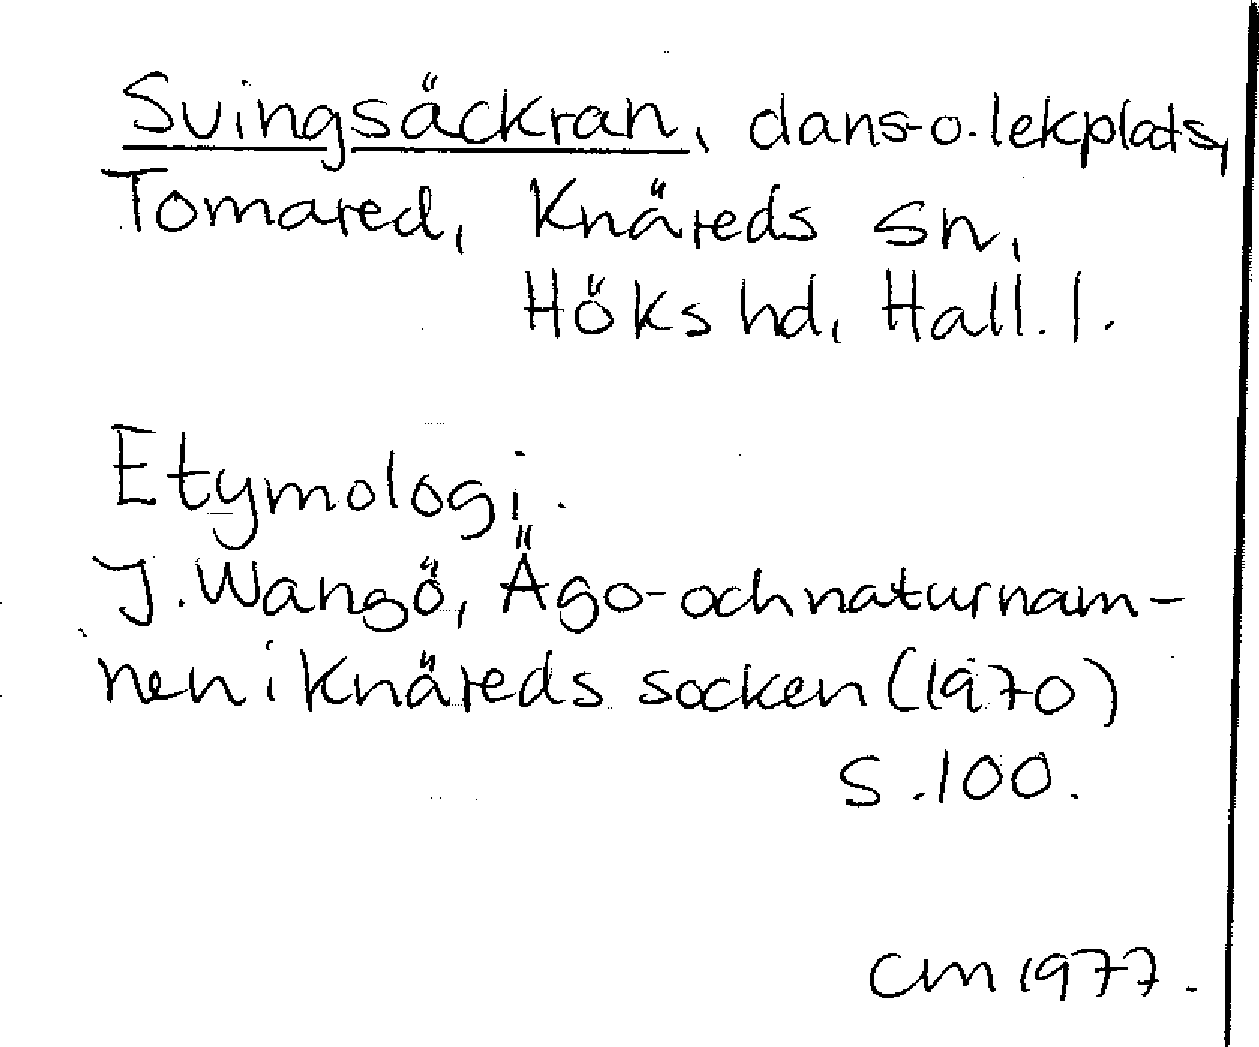 Svingsäckran, dans- o. lekplats,
Tomared, Knäreds sn,
Höks hd, Hall. l.
Etymologi.
J. Wangö, Ägo- och naturnam-
nen i Knäreds socken (1970)
s. 100.
CM 1977.